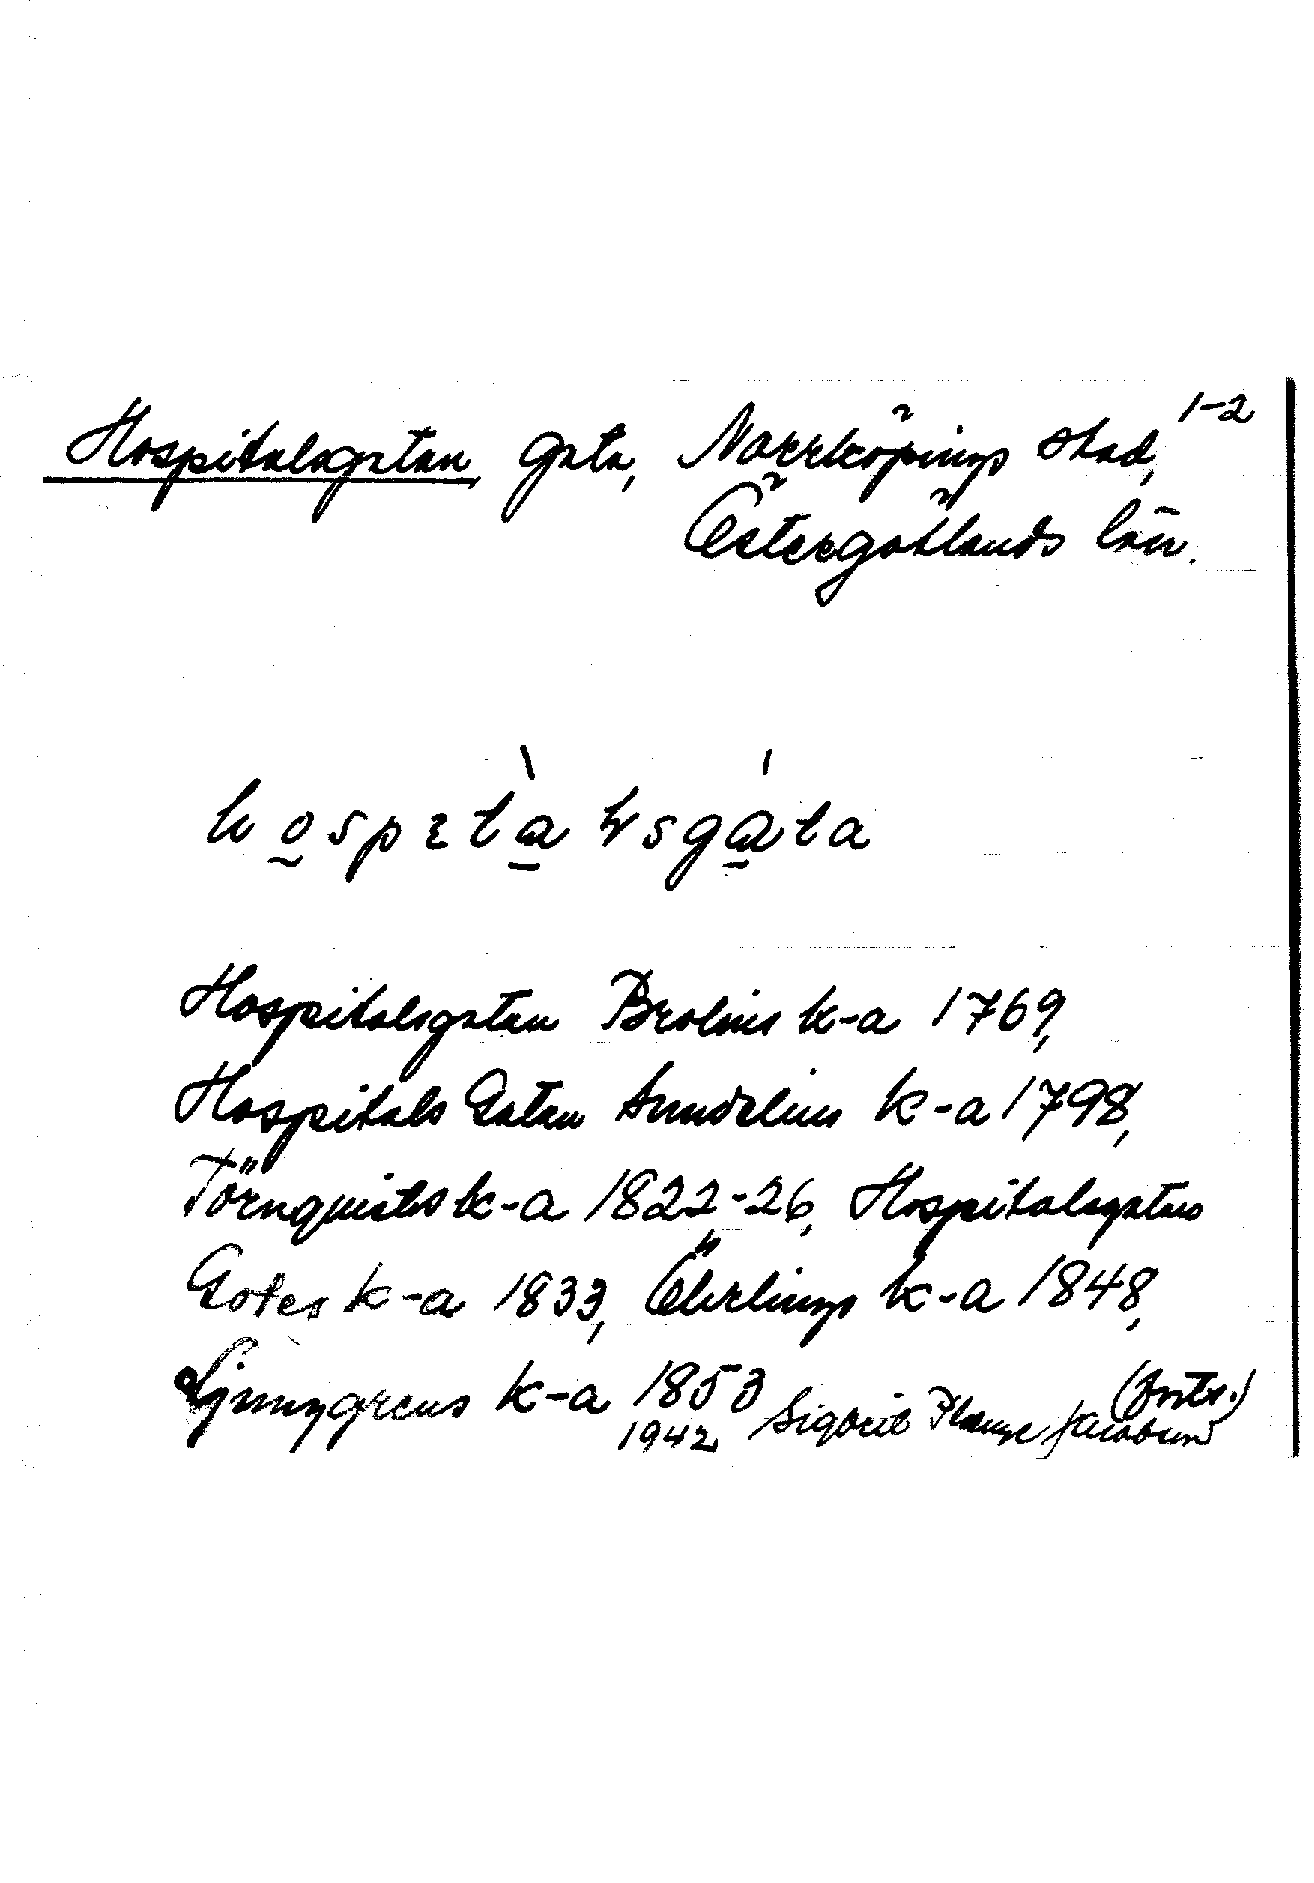 1-2
Hospitalsgatan, gata, Norrköpings stad,
Östergötlands län.
hospɩtàlsgáta
Hospitalsgatan Brolins k-a 1769,
Hospitals Gatan Sundelius k-a 1798,
Törnquists k-a 1822-26, Hospitalsgatan
Gotes k-a 1833, Öhrlings k-a 1848,
Ljunggrens k-a 1853 (forts.)
1942 Sigbrit Plænge Jacobson